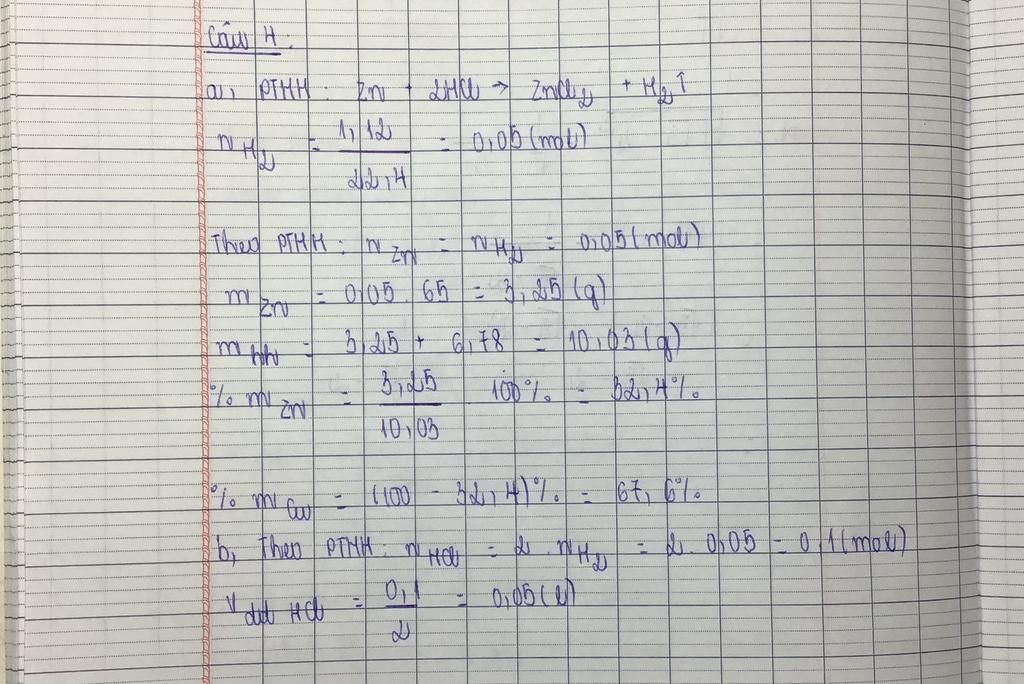 Câu 4:
a, PTHH: Zn + 2HCl → ZnCl₂ + H₂↑
n H₂ = 1,12 / 22,4 = 0,05 (mol)
Theo PTHH: n Zn = n H₂ = 0,05 (mol)
m Zn = 0,05 . 65 = 3,25 (g)
m hh = 3,25 + 6,78 = 10,03 (g)
% m Zn = 3,25 / 10,03 . 100% = 32,4%
% m Cu = (100 - 32,4)% = 67,6%
b, Theo PTHH: n HCl = 2 . n H₂ = 2 . 0,05 = 0,1 (mol)
V dd HCl = 0,1 / 2 = 0,05 (l)